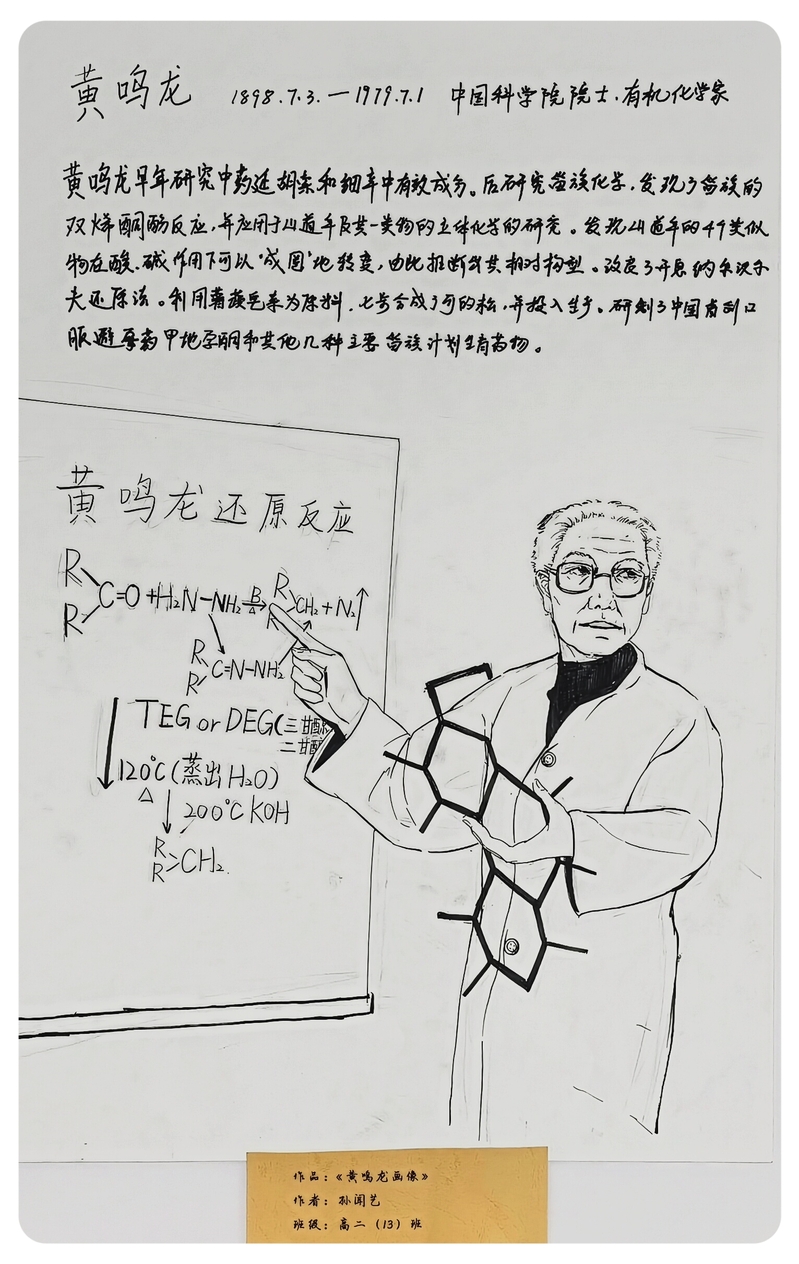 黄鸣龙 1898.7.3.—1979.7.1 中国科学院院士.有机化学家
黄鸣龙早年研究中药延胡索和细辛中有效成分。后研究甾族化学,发现了甾族的
双烯酮酚反应,并应用于山道年及其一类物的立体化学的研究。发现山道年的4个类似
物在酸、碱作用下可以“成圈”地转变,由此推断出其相对构型。改良了开息纳尔沃尔
夫还原法。利用薯蓣皂素为原料,七步合成了可的松,并投入生产。研制了中国首列口
服避孕药甲地孕酮和其他几种主要甾族计划生育药物。
黄鸣龙还原反应
R
R C=O+H₂N-NH₂ B △ R R CH₂+N₂↑
R
R C=N-NH₂
TEG or DEG(三甘醇
二甘醇
120℃(蒸出H₂O)
△ 200℃ KOH
R
R >CH₂.
作品:《黄鸣龙画像》
作者:孙闻艺
班级:高二(13)班